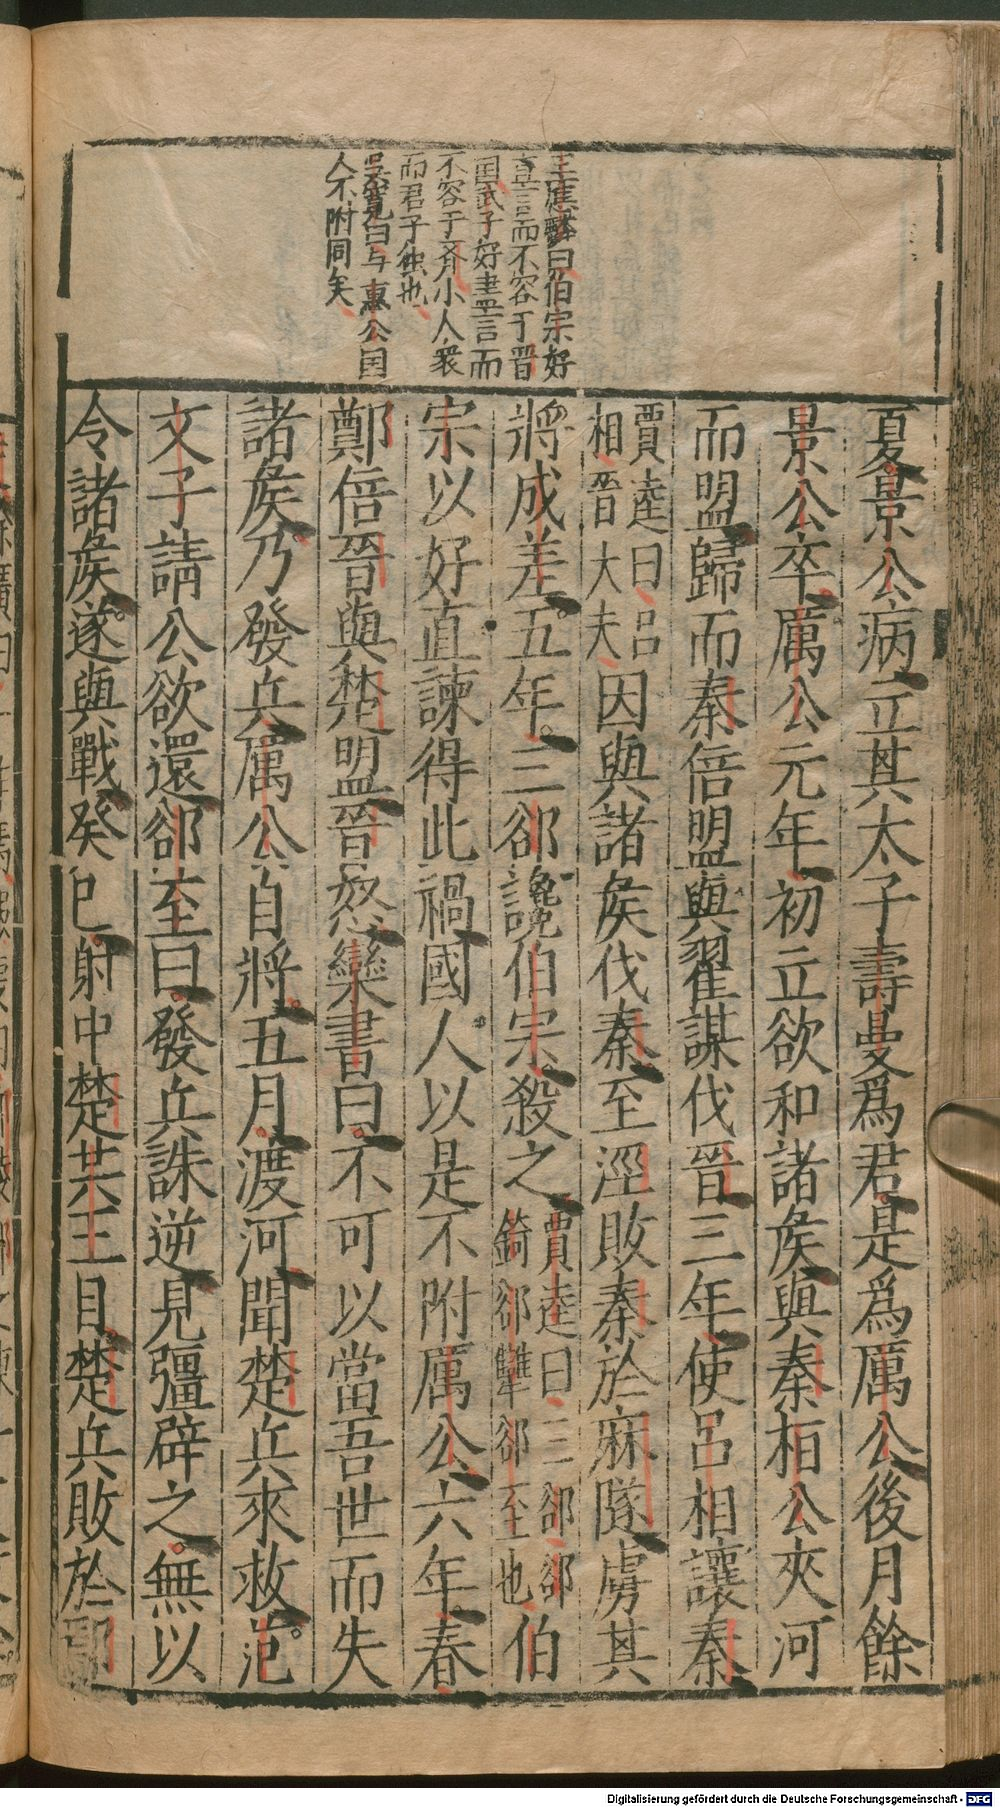 王應麟曰伯宗好
直言而不容于晉
国武子好盡言而
不容于齐小人衆
而君子独也
吴寛曰与惠公国
人不附同矣
夏景公病立其太子壽曼爲君是爲厲公後月餘
景公卒厲公元年初立欲和諸矦與秦桓公夾河
而盟歸而秦倍盟與翟謀伐晉三年使呂相讓秦
賈逵曰呂
相晉大夫
因與諸矦伐秦至涇敗秦於麻隧虜其
將成差五年三郤讒伯宗殺之
賈逵曰三郤郤
錡郤犫郤至也
伯
宗以好直諫得此禍國人以是不附厲公六年春
鄭倍晉與楚盟晉怒欒書曰不可以當吾世而失
諸矦乃發兵厲公自將五月渡河聞楚兵來救范
文子請公欲還郤至曰發兵誅逆見彊辟之無以
令諸矦遂與戰癸巳射中楚共王目楚兵敗於鄢
Digitalisierung gefördert durch die Deutsche Forschungsgemeinschaft - DFG